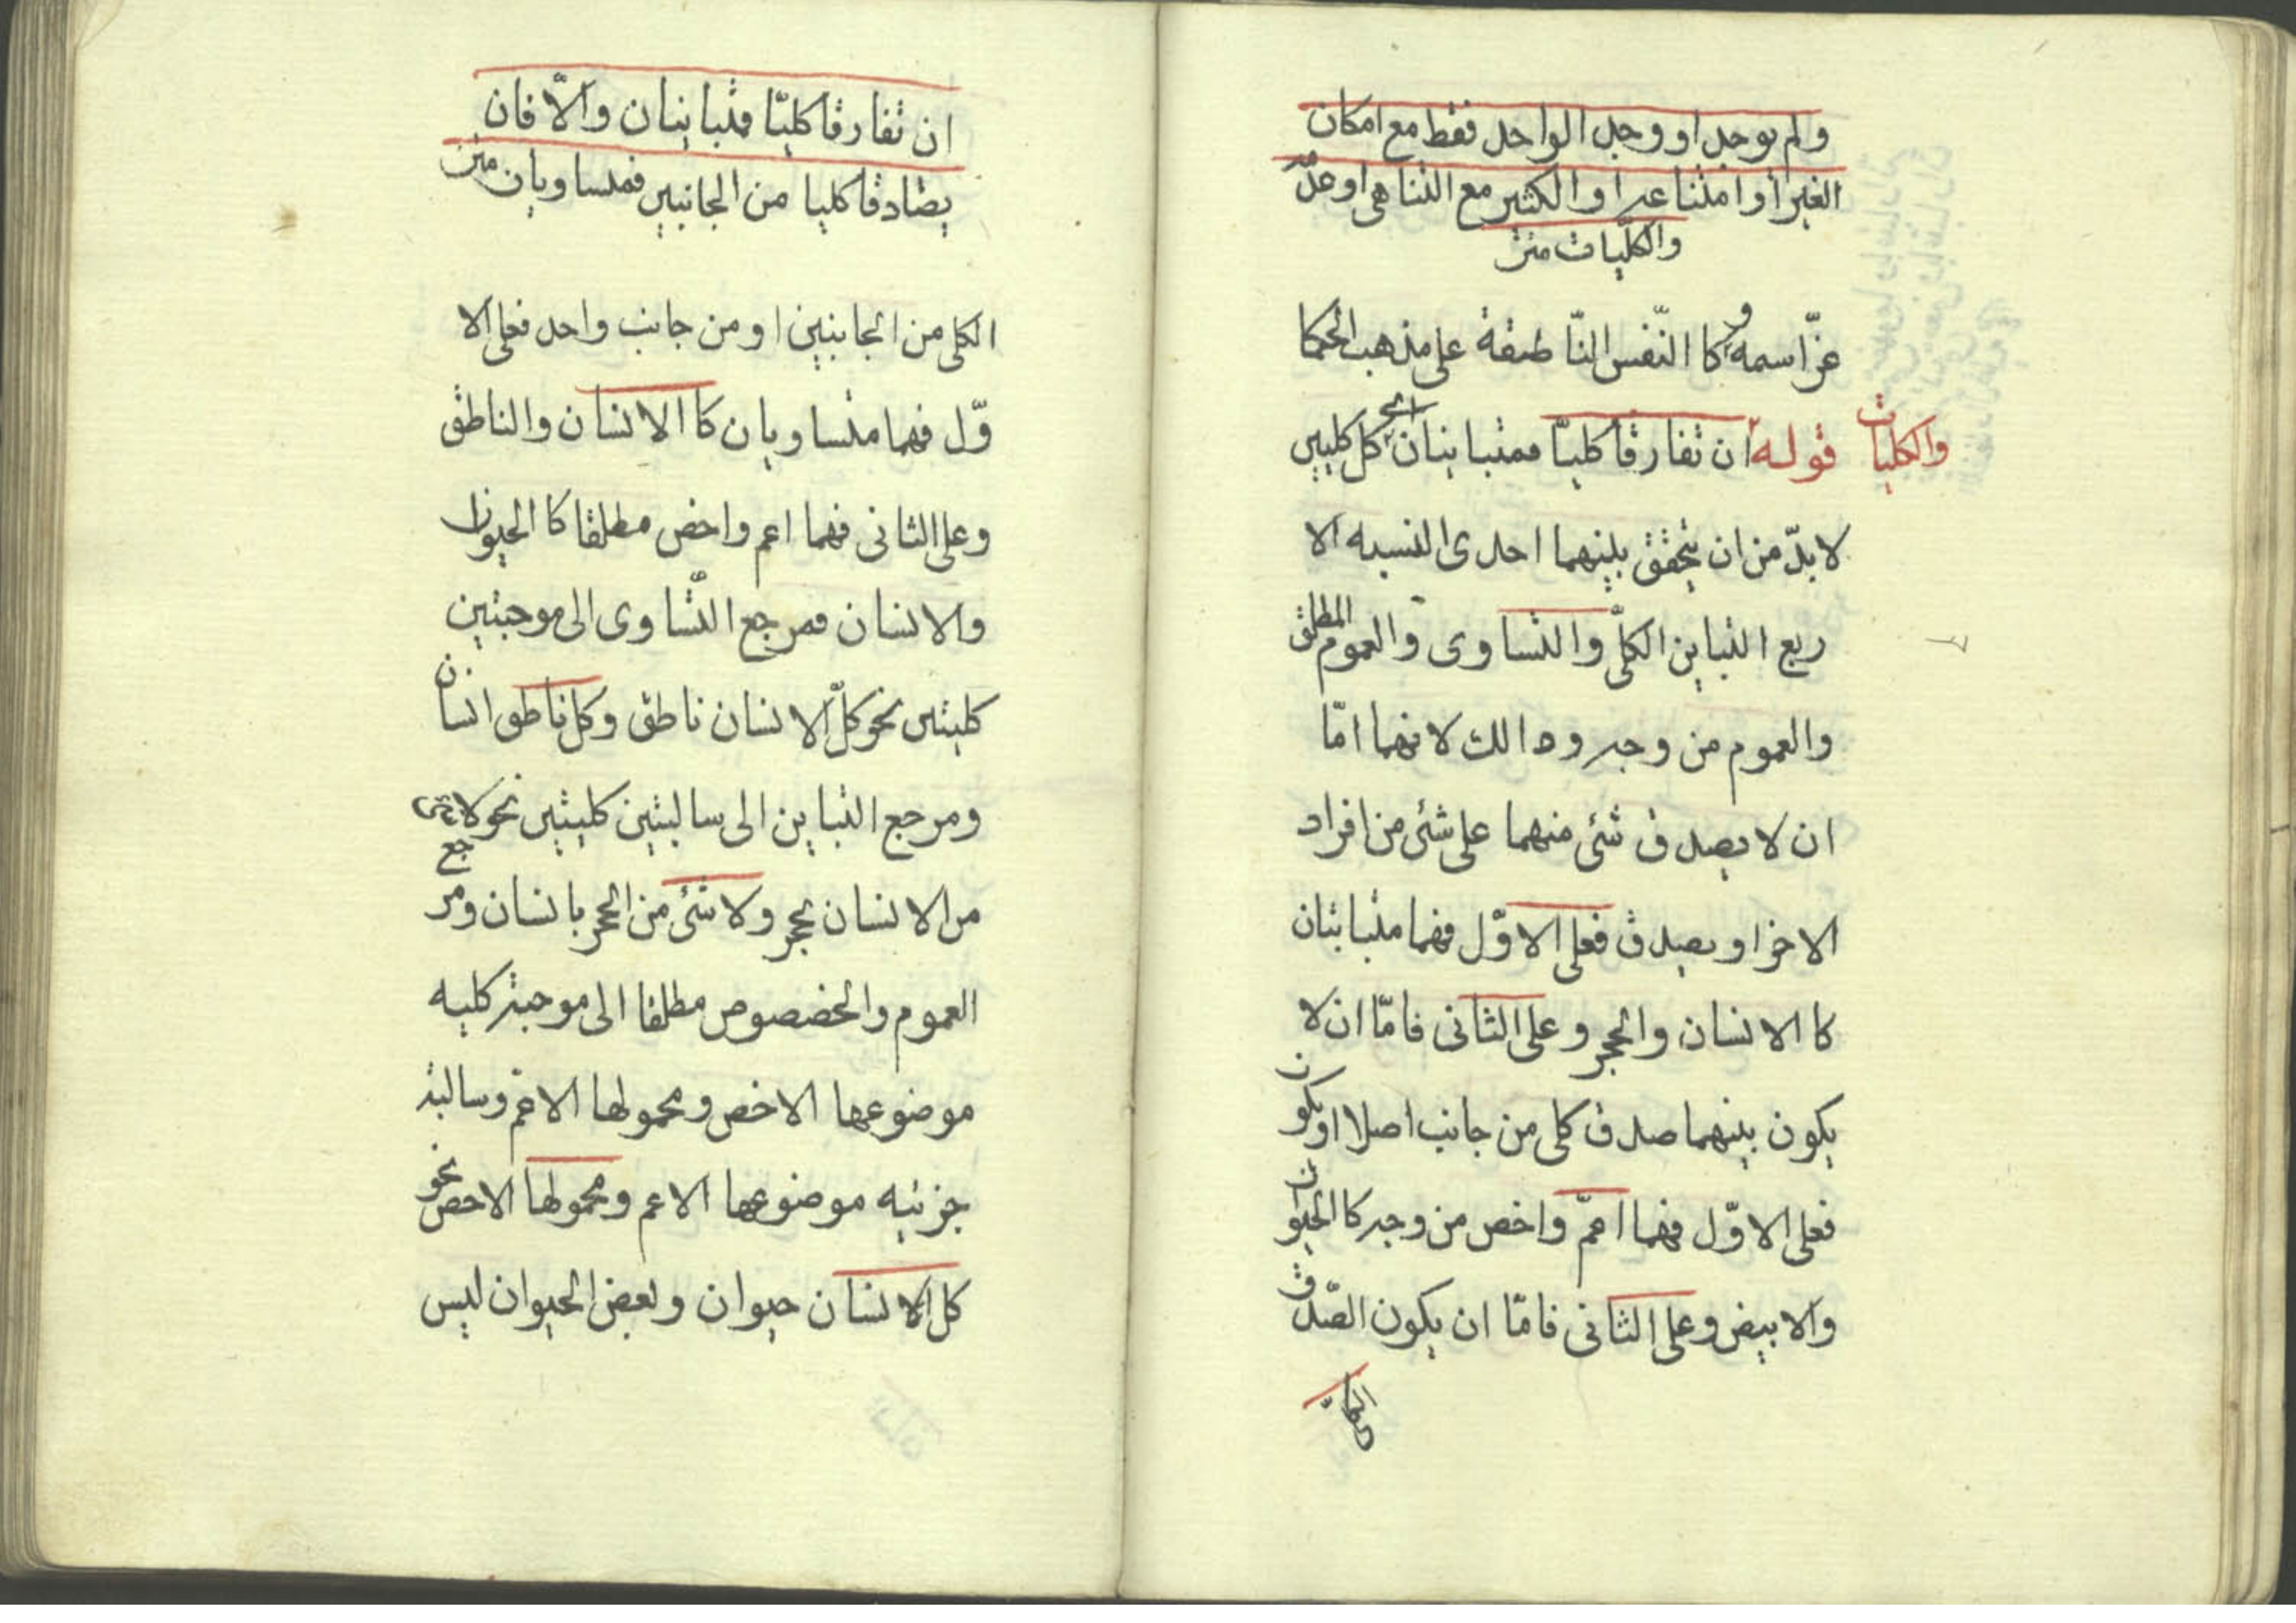 ولم يوجد او وجد الواحد فقط مع امكان
الغير او امتناعه او الكثير مع التناهى او عدمه
والكليات متن
عزّ اسمه و كا النّفس النّاطقة على مذهب الحكما
والكليات قوله ان تفارقا كليّا فمتباينان الخ كل كليين
لا بدّ من ان يتحقق بينهما احدى النسبه الا
ربع التباين الكلّى والتساوى والعموم المطلق
والعموم من وجه وذالك لانهما امّا
ان لا يصدق شئى منهما على شئى من افراد
الاخر او يصدق فعلى الاوّل فهما متباينان
كا الانسان والحجر وعلى الثانى فامّا ان لا
يكون بينهما صدق كلى من جانب اصلا او يكون
فعلى الاوّل فهما اعمّ واخص من وجه كا الحيوان
والابيض وعلى الثانى فامّا ان يكون الصّدق
ان تفارقا كليّا فمتباينان والّا فان
يصادقا كليا من الجانبين فمتساويان متن
الكلى من الجانبين او من جانب واحد فعلى الا
وّل فهما متساويان كا الانسان والناطق
وعلى الثانى فهما اعم واخص مطلقا كا الحيوان
والانسان فمرجع التّساوى الى موجبتين
كليتين نحو كلّ الانسان ناطق وكل ناطق انسان
ومرجع التباين الى سالبتين كليتين نحو لا شئى
من الانسان بحجر ولا شئى من الحجر بانسان ومرجع
العموم والخصوص مطلقا الى موجبة كليه
موضوعها الاخص ومحمولها الاعمّ وسالبة
جزئيه موضوعها الاعم ومحمولها الاخص نحو
كل الانسان حيوان وبعض الحيوان ليس